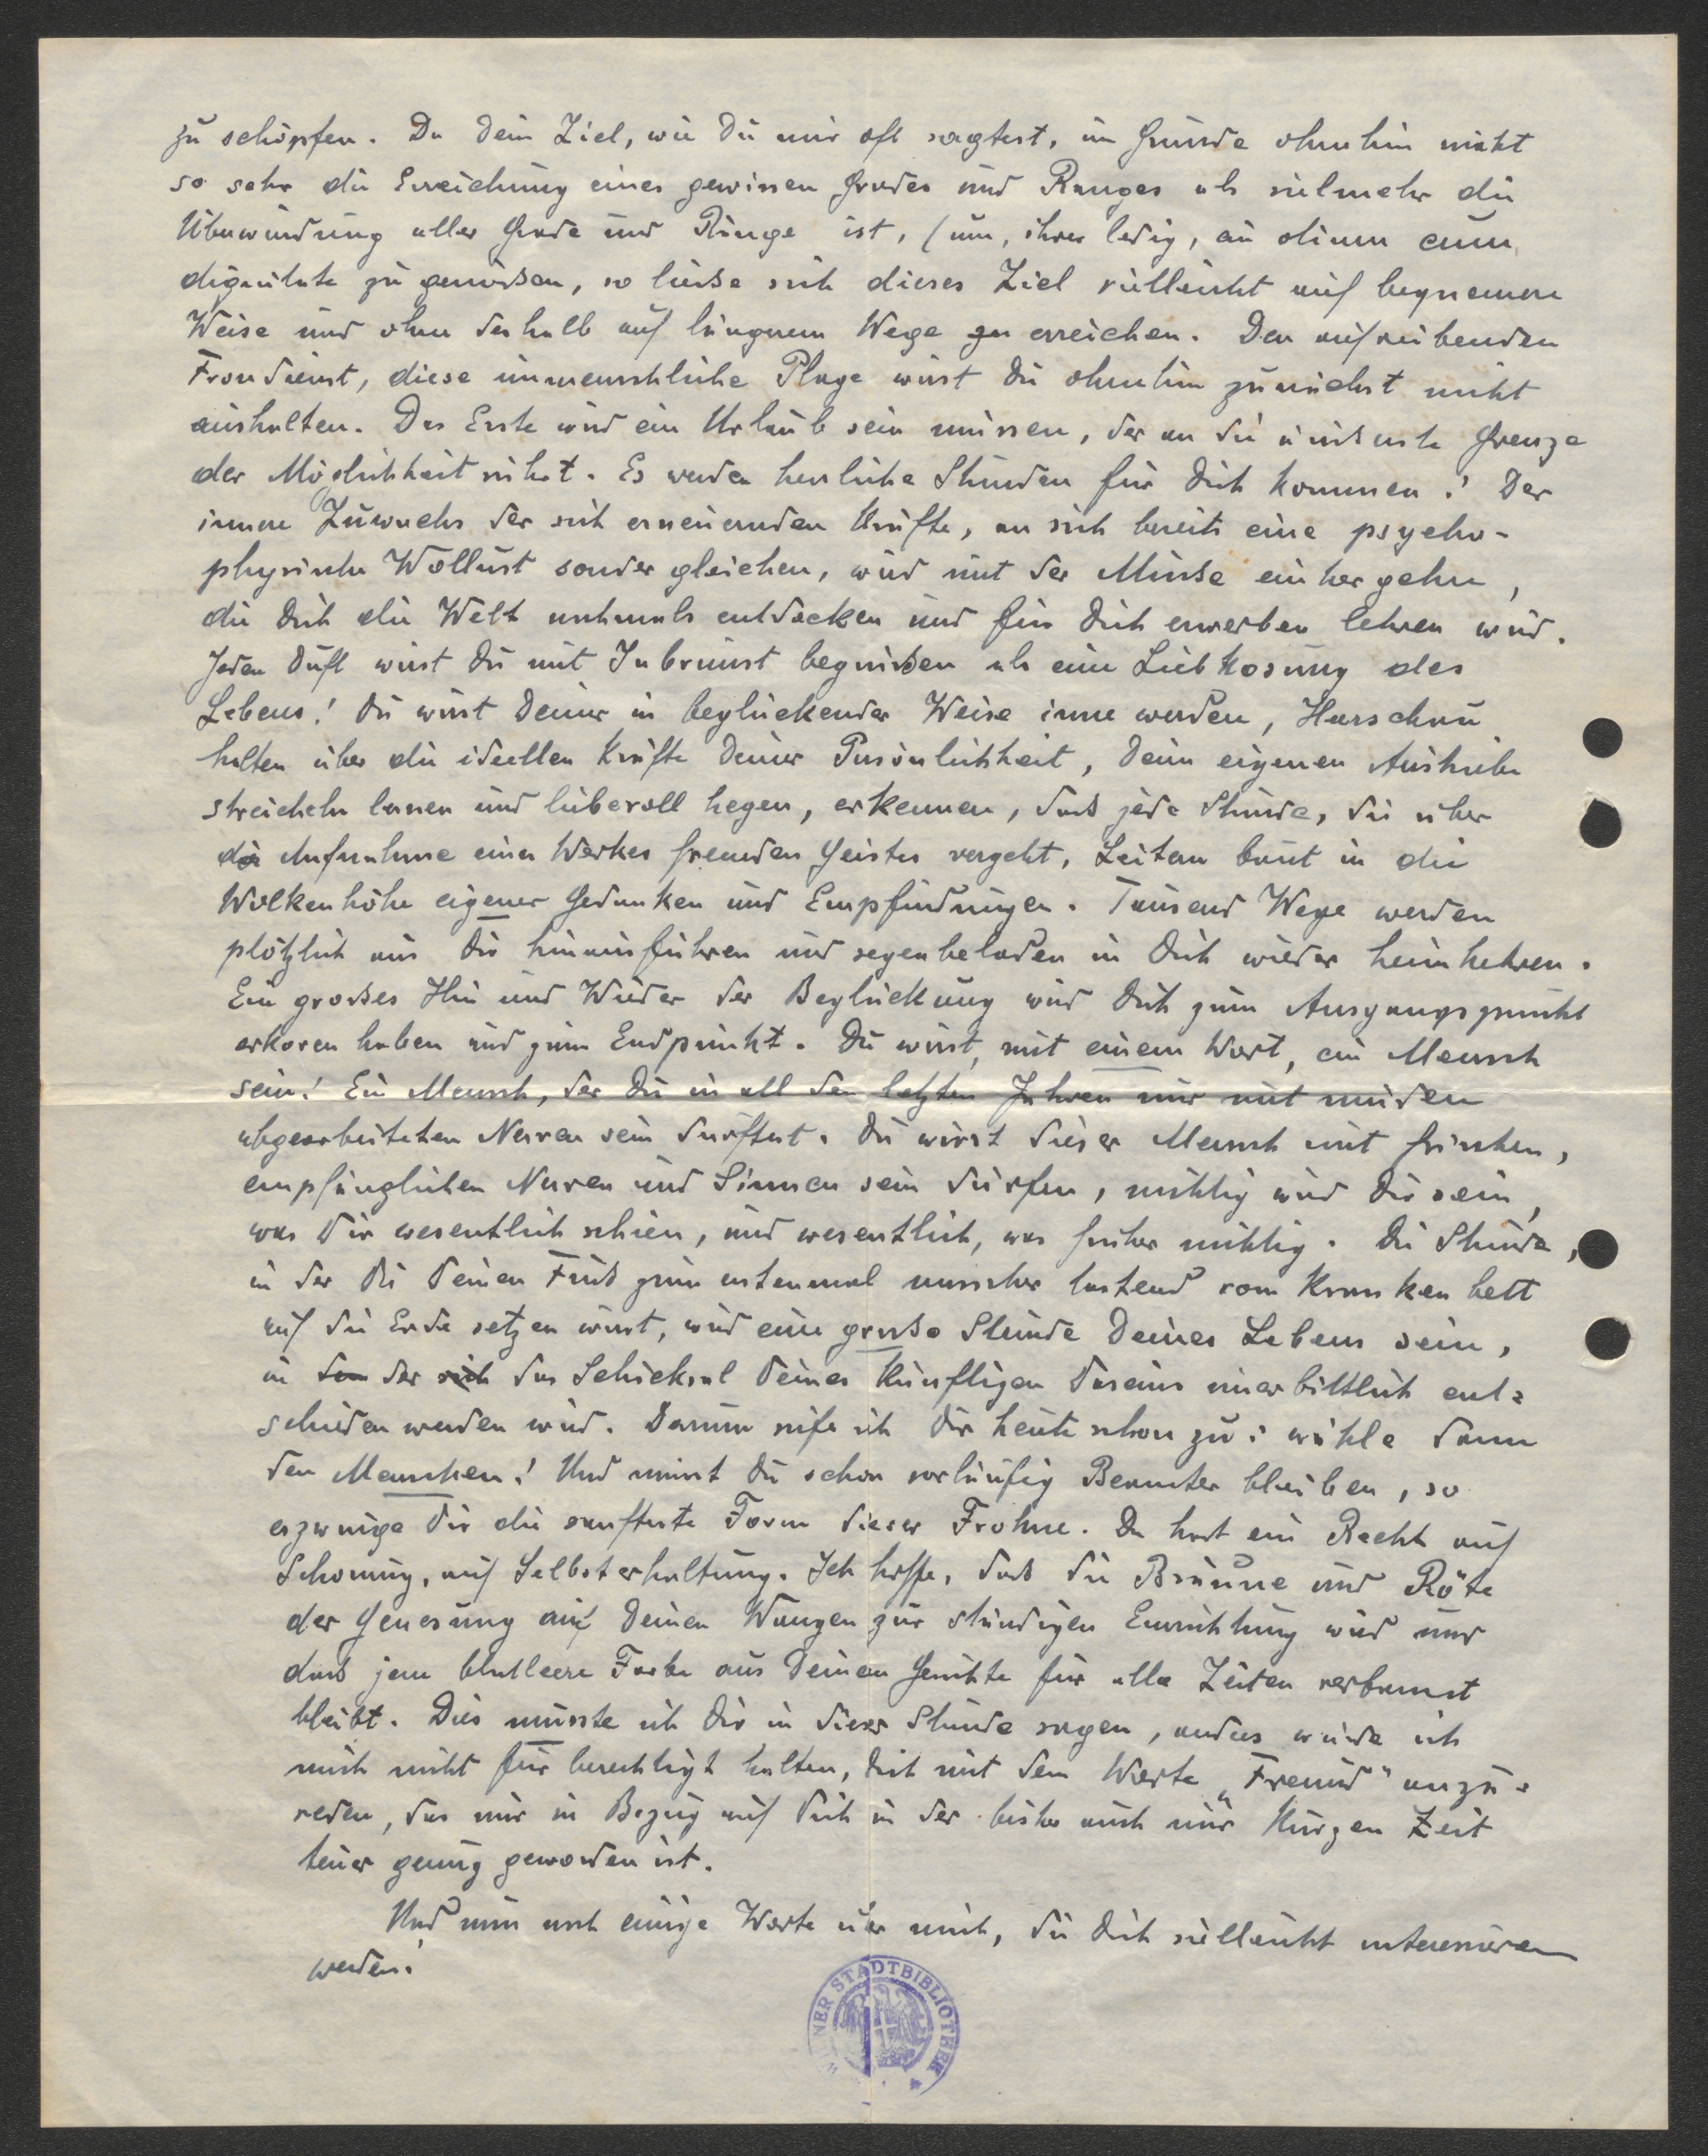 zu schöpfen. Da Dein Ziel, wie Du mir oft sagtest, im Grunde ohnehin nicht
so sehr die Erreichung eines gewissen Grades und Ranges als vielmehr die
Überwindung aller Grade und Ränge ist, (um, ihrer ledig, ein otium cum
dignitate zu geniessen, so liesse sich dieses Ziel vielleicht auf bequemere
Weise und ohne deshalb auf längerem Wege zu erreichen. Den aufreibenden
Frondienst, diese unmenschliche Plage wirst Du ohnehin zunächst nicht
aushalten. Das Erste wird ein Urlaub sein müssen, der an die äusserste Grenze
der Möglichkeit rührt. Es werden herrliche Stunden für Dich kommen! Der
innere Zuwachs der sich erneuernden Kräfte, an sich bereits eine psycho-
physische Wollust sondergleichen, wird mit der Musse einhergehn,
die Dich die Welt nochmals entdecken und für Dich erwerben lehren wird.
Jeden Duft wirst Du mit Inbrunst begrüssen als eine Liebkosung des
Lebens! Du wirst Deiner in beglückender Weise inne werden, Heerschau
halten über die ideellen Kräfte Deiner Persönlichkeit, Deine eigenen Antriebe
streicheln lassen und liebevoll hegen, erkennen, dass jede Stunde, die über
die Aufnahme eines Werkes fremden Geistes vergeht, Leitern baut in die
Wolkenhöhe eigener Gedanken und Empfindungen. Tausend Wege werden
plötzlich aus Dir hinausführen und segenbeladen in Dich wieder heimkehren.
Ein grosses Hin und Wieder der Beglückung wird Dich zum Ausgangspunkt
erkoren haben und zum Endpunkt. Du wirst, mit einem Wort, ein Mensch
sein! Ein Mensch, der Du in all den letzten Jahren nur mit müden
abgearbeiteten Nerven sein durftest. Du wirst dieser Mensch mit frischen,
empfänglichen Nerven und Sinnen sein dürfen, nichtig wird Dir sein,
was Dir wesentlich schien, und wesentlich, was früher nichtig. Die Stunde,
in der Du Deinen Fuss zum erstenmal unsicher tastend vom Krankenbett
auf die Erde setzen wirst, wird eine grosse Stunde Deines Lebens sein,
in den der sich das Schicksal Deines künftigen Daseins unerbittlich ent-
schieden werden wird. Darum rufe ich Dir heute schon zu: wähle dann
den Menschen! Und musst Du schon vorläufig Beamter bleiben, so
erzwinge Dir die sanfteste Form dieser Frohne. Du hast ein Recht auf
Schonung, auf Selbsterhaltung. Ich hoffe, dass die Bräune und Röte
der Genesung auf Deinen Wangen zur ständigen Einrichtung wird und
dass jene blutleere Farbe aus Deinem Gesichte für alle Zeiten verbannt
bleibt. Dies musste ich Dir in dieser Stunde sagen, anders würde ich
mich nicht für berechtigt halten, Dich mit dem Worte „Freund" anzu-
reden, das mir in Bezug auf Dich in der bisher auch nur kurzen Zeit
teuer genug geworden ist.
Und nun noch einige Worte über mich, die Dich vielleicht interessieren
werden:
WIENER STADTBIBLIOTHEK